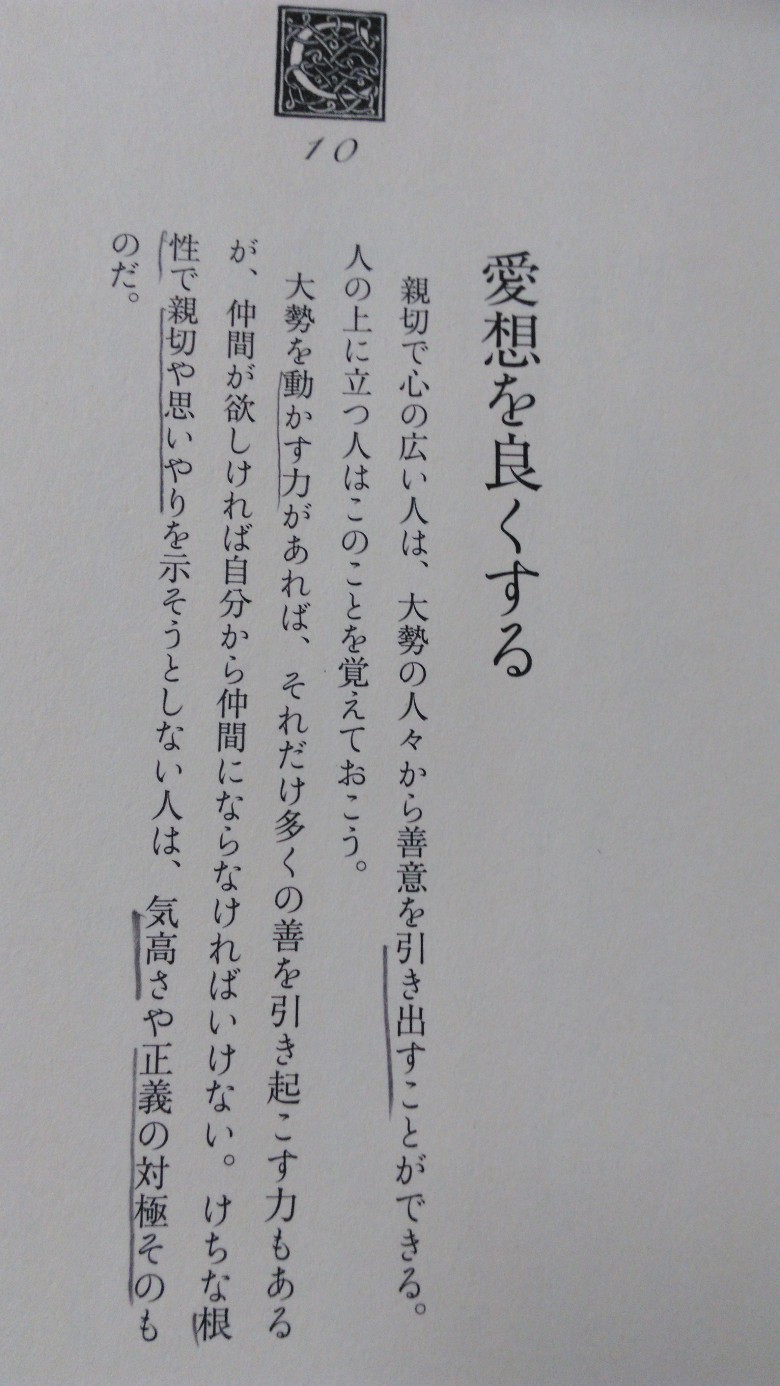 C
10
愛想を良くする
親切で心の広い人は、大勢の人々から善意を引き出すことができる。
人の上に立つ人はこのことを覚えておこう。
大勢を動かす力があれば、それだけ多くの善を引き起こす力もある
が、仲間が欲しければ自分から仲間にならなければいけない。けちな根
性で親切や思いやりを示そうとしない人は、気高さや正義の対極そのも
のだ。